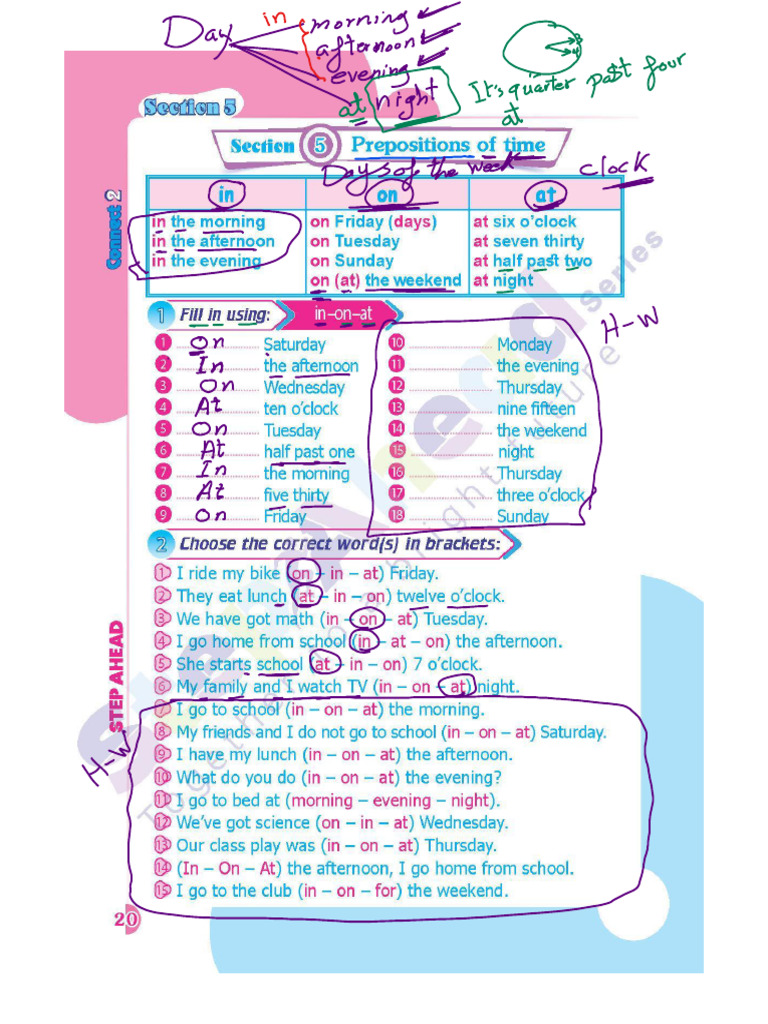 Day
in
morning
afternoon
evening
at night
3
4
It's quarter past four
at
Section 5
Section 5 Prepositions of time
Days of the week
clock
in on at
in the morning on Friday (days) at six o'clock
in the afternoon on Tuesday at seven thirty
in the evening on Sunday at half past two
on (at) the weekend at night
Connect 2
1 Fill in using: in–on–at
H-W
1 On Saturday 10 Monday
2 In the afternoon 11 the evening
3 On Wednesday 12 Thursday
4 At ten o'clock 13 nine fifteen
5 On Tuesday 14 the weekend
6 At half past one 15 night
7 In the morning 16 Thursday
8 At five thirty 17 three o'clock
9 On Friday 18 Sunday
2 Choose the correct word(s) in brackets:
1 I ride my bike (on – in – at) Friday.
2 They eat lunch (at – in – on) twelve o'clock.
3 We have got math (in – on – at) Tuesday.
4 I go home from school (in – at – on) the afternoon.
5 She starts school (at – in – on) 7 o'clock.
6 My family and I watch TV (in – on – at) night.
7 I go to school (in – on – at) the morning.
8 My friends and I do not go to school (in – on – at) Saturday.
9 I have my lunch (in – on – at) the afternoon.
10 What do you do (in – on – at) the evening?
11 I go to bed at (morning – evening – night).
12 We've got science (on – in – at) Wednesday.
13 Our class play was (in – on – at) Thursday.
14 (In – On – At) the afternoon, I go home from school.
15 I go to the club (in – on – for) the weekend.
STEP AHEAD
H-W
20
Step Ahead Series
Together to a bright future